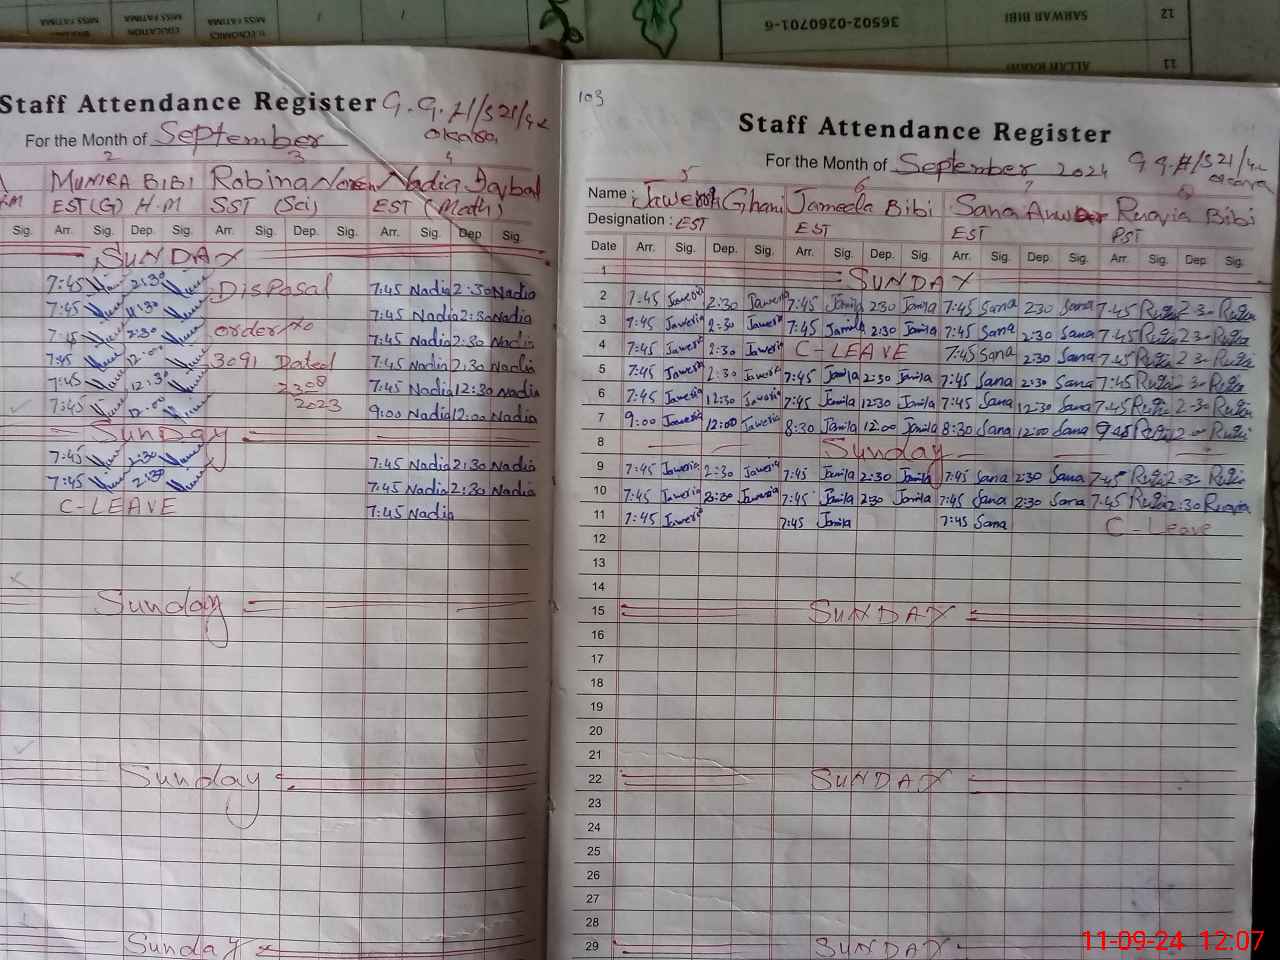 MISS FATIMA
MISS FATIMA
MISS FATIMA
EDUCATION
ECONOMICS
36502-0260701-6
SARWAR BIBI
12
11
Staff Attendance Register G.G.H/S 21/4L
For the Month of September Okara
2 3 4
MUNIRA BIBI Robina Noren Nadia Iqbal
EST (G) H.M SST (Sci) EST (Math)
Sig. Arr. Sig. Dep. Sig. Arr. Sig. Dep. Sig. Arr. Sig. Dep. Sig.
SUNDAY
7:45 2:30 Disposal 7:45 Nadia 2:30 Nadia
7:45 7:45 Nadia 2:30 Nadia
7:45 2:30 order No 7:45 Nadia 2:30 Nadia
7:45 12:00 3091 Dated 7:45 Nadia 2:30 Nadia
7:45 12:30 7:45 Nadia 12:30 Nadia
7:45 12:00 2023 9:00 Nadia 12:00 Nadia
Sunday
7:45 2:30 7:45 Nadia 2:30 Nadia
7:45 2:30 7:45 Nadia 2:30 Nadia
C-LEAVE 7:45 Nadia
Sunday
Sunday
Sunday
103
Staff Attendance Register
For the Month of September 2024 G G.H/S 21/4L
Okara
5 6 7 8
Name : Javeria Ghani Jameela Bibi Sana Anwar Ruqia Bibi
Designation : EST EST EST PST
Date Arr. Sig. Dep. Sig. Arr. Sig. Dep. Sig. Arr. Sig. Dep. Sig. Arr. Sig. Dep. Sig.
1 SUNDAY
2 7:45 Jaweria 2:30 Jaweria 7:45 Jamila 2:30 Jamila 7:45 Sana 2:30 Sana 7:45 Ruqia 2:30 Ruqia
3 7:45 Jaweria 2:30 Jaweria 7:45 Jamila 2:30 Jamila 7:45 Sana 2:30 Sana 7:45 Ruqia 2:30 Ruqia
4 7:45 Jaweria 2:30 Jaweria C-LEAVE 7:45 Sana 2:30 Sana 7:45 Ruqia 2:30 Ruqia
5 7:45 Jaweria 2:30 Jaweria 7:45 Jamila 2:30 Jamila 7:45 Sana 2:30 Sana 7:45 Ruqia 2:30 Ruqia
6 7:45 Jaweria 12:30 Jaweria 7:45 Jamila 12:30 Jamila 7:45 Sana 12:30 Sana 7:45 Ruqia 2:30 Ruqia
7 9:00 Jaweria 12:00 Jaweria 8:30 Jamila 12:00 Jamila 8:30 Sana 12:00 Sana Ruqia Ruqia
8 Sunday
9 7:45 Jaweria 2:30 Jaweria 7:45 Jamila 2:30 Jamila 7:45 Sana 2:30 Sana 7:45 Ruqia 2:30 Ruqia
10 7:45 Jaweria 2:30 Jaweria 7:45 Jamila 2:30 Jamila 7:45 Sana 2:30 Sana 7:45 Ruqia 2:30 Ruqia
11 7:45 Jaweria 7:45 Jamila 7:45 Sana C-Leave
12
13
14
15 SUNDAY
16
17
18
19
20
21
22 SUNDAY
23
24
25
26
27
28
29 SUNDAY
11-09-24 12:07